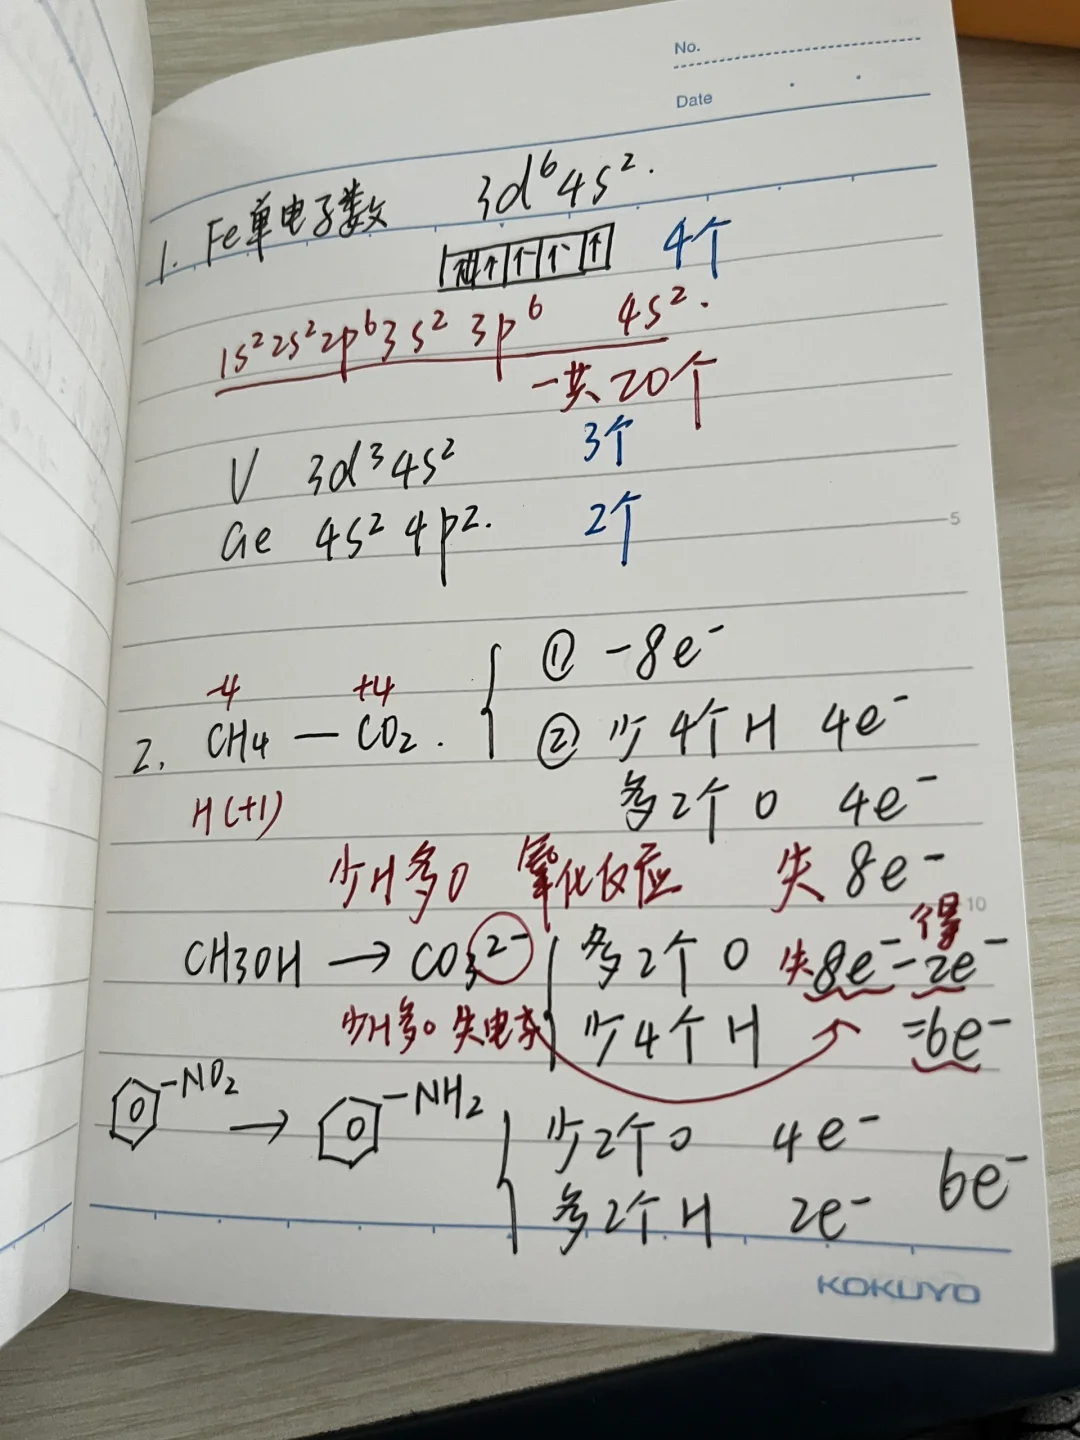 No.
Date
1. Fe单电子数 3d⁶4s².
↑↓ ↑ ↑ ↑ ↑ 4个
1s²2s²2p⁶3s² 3p⁶ 4s².
一共20个
V 3d³4s² 3个
Ge 4s² 4p². 2个
5
① -8e⁻
-4 +4
2. CH4 — CO2. ② 少4个H 4e⁻
H(+1) 多2个O 4e⁻
少H多O 氧化反应 失 8e⁻
10
得
CH3OH → CO3²⁻ 多2个O 失8e⁻-2e⁻
少H多O 失电子 少4个H =6e⁻
-NO2 → -NH2
少2个O 4e⁻
多2个H 2e⁻ 6e⁻
KOKUYO